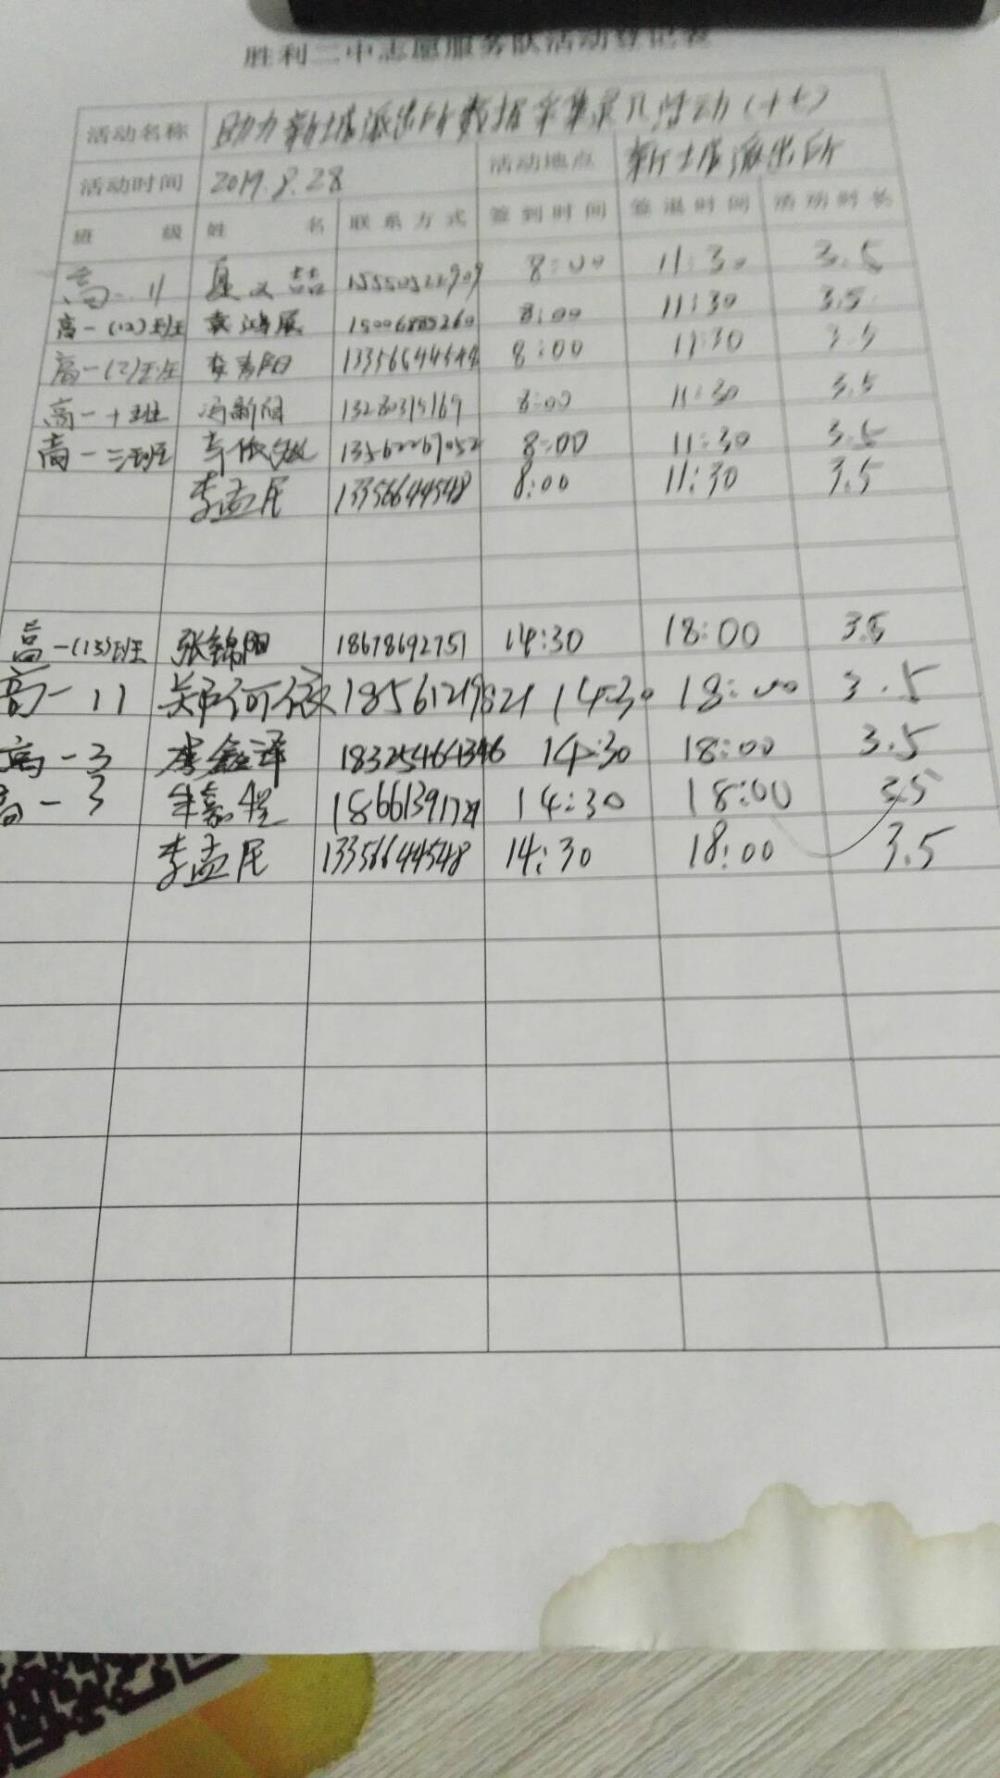 胜利二中志愿服务队活动登记表
活动名称 助力新城派出所数据采集录入活动(十七)
活动时间 2019.8.28 活动地点 新城派出所
班级 姓名 联系方式 签到时间 签退时间 活动时长
高一11 夏文喆 15550522909 8:00 11:30 3.5
高一(12)班 袁鸿展 15006885260 8:00 11:30 3.5
高一(2)班 李青阳 13356644548 8:00 11:30 3.5
高一十班 冯新闻 8:00 11:30 3.5
高一三班 8:00 11:30 3.5
李孟民 13356644548 8:00 11:30 3.5
高一(13)班 张锦阳 18678692751 14:30 18:00 3.5
高一11 18561219821 14:30 18:00 3.5
高一3 李鑫泽 183254661346 14:30 18:00 3.5
高一3 18661391721 14:30 18:00 3.5
李孟民 13356644548 14:30 18:00 3.5